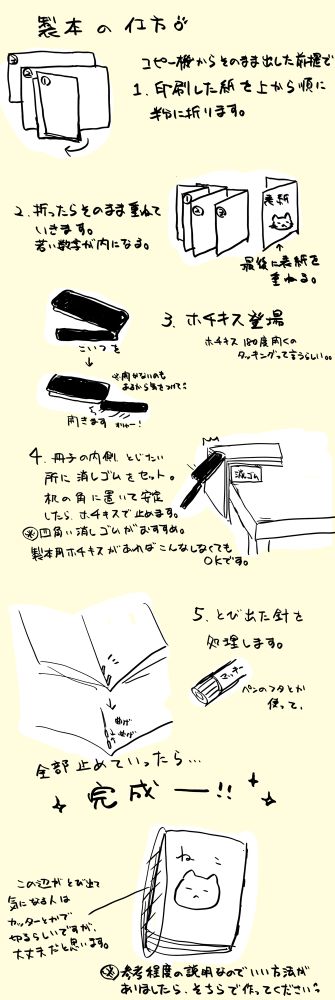 製本の仕方
コピー機からそのまま出した前提で
1. 印刷した紙を上から順に
半分に折ります。
①
②
③
2. 折ったらそのまま重ねて
いきます。
若い数字が内になる。
①
②
③
表紙
↑
最後に表紙を
重ねる。
3. ホチキス登場
ホチキス 180度開くの
タッキングって言うらしい。。
こいつを
↓
※開かないのも
あるから気をつけて!
開きます
オリャー!
4. 冊子の内側、とじたい
所に消しゴムをセット。
机の角に置いて安定
したら、ホチキスで止めます。
※四角い消しゴムがおすすめ。
製本用ホチキスがあればこんなしなくても
OKです。
消しゴム
5. とび出た針を
処理します。
マッキー
ペンのフタとか
使って、
曲げ
曲げ
全部止めていったら…
完成ー!!
この辺がとび出て
気になる人は
カッターとかで
切るらしいですが、
大丈夫だと思います。
ねこ
※参考程度の説明なのでいい方法が
ありましたら、そちらで作ってください